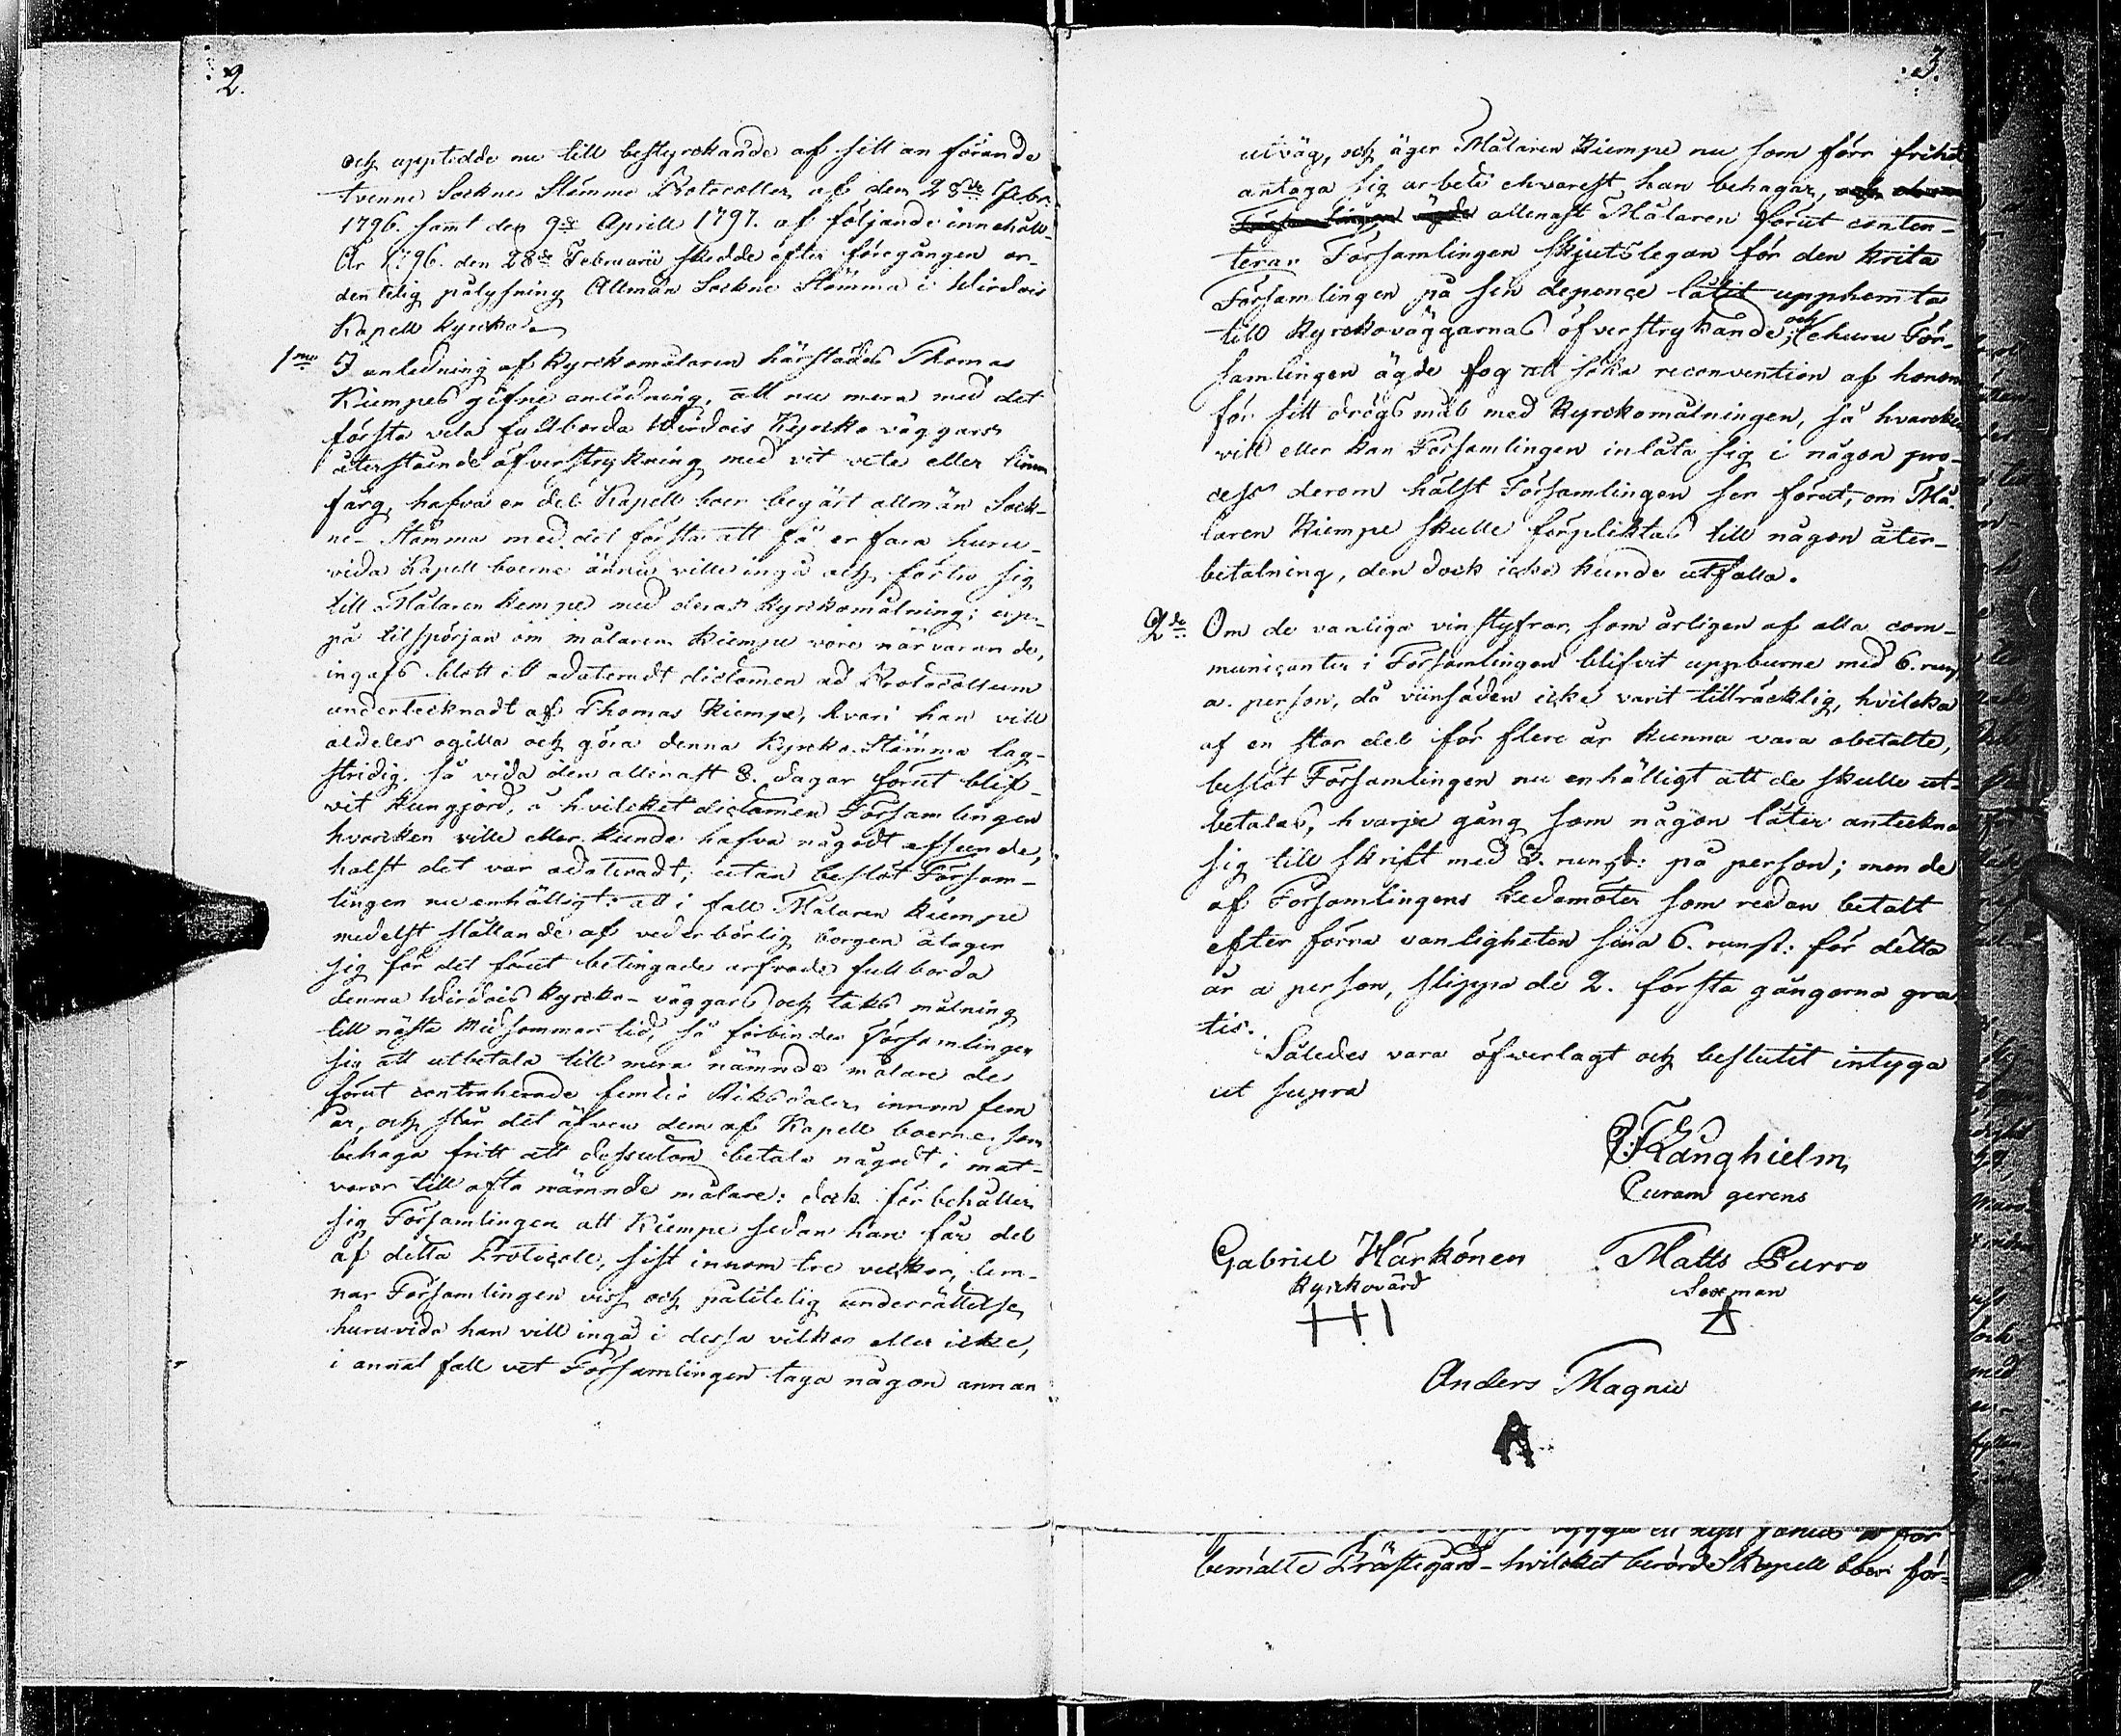 2.
och upptedde nu till bestyrckande af sitt an förande
tvenne Sockne Stämmo Protocoller af den 28de Febr.
1796. samt den 9de Aprill 1797. af följande innehåll.
År 1796. den 28de Februarii skedde efter föregången or-
dentelig pålysning Allmän Sockne Stämma i Wirdois
Kapell kyrcka.
1mo I anledning af kyrckomålaren härstädes Thomas
Kiempes gifne anledning, att nu mera med det
första vela fullborda Wirdois Kyrcko väggars
återstående öfverstrykning med vit vete eller
färg, hafva en del Kapell boer begärt allmän Sock-
ne-Stämma med det första att få erfara huru-
vida Kapell boerne ännu ville ingå och förlita sig
till Målaren Kempe med deras Kyrckomålning; up-
på tilspörjan om målaren Kiempe vore när varande,
ingafs blott ett odateradt dictamen ad Protocollum
undertecknadt af Thomas Kiempe, hvari han vill
aldeles ogilla och göra denna Kyrcko-Stämma lag-
stridig. så vida den allenast 8. dagar förut blif-
vit kungjord, å hvilcket dictamen Församlingen
hvarcken ville eller kunde hafva något afseende,
halst det var odateradt; utan beslöt Försam-
lingen nu enhälligt: att i fall Målaren Kiempe
medelst ställande af vederbörlig borgen åtager
sig för det förut betingade arfvode fullborda
denna Wirdois Kyrcko-väggars och taks målning
till nästa Midsommars tid, så förbinder Församlingen
sig att utbetala till mera nämnde målare de
förut contraherade femtio Riksdaler innom fem
år, och står det äfven dem af Kapell boerne som
behaga fritt att dessutom betala något i mat-
varor till ofta nämnde målare: dock förbehåller
sig Församlingen att Kiempe sedan han får del
af detta Protocoll, sist innom tre veckor, lem-
nar Församlingen viss och pålitelig underrättelse,
huruvida han vill ingå i dessa vilkor eller icke,
i annat fall vet Församlingen taga någon annan
3.
utväg, och äger Målaren Kiempe nu som förr frihet
antaga sig arbete ehvarest han behagar, och
Församlingen ägde allenast Målaren förut conten-
terar Församlingen skjutslegan för den Krita
Församlingen på sin depence låtit upphemta
till Kyrckoväggarnas öfverstrykande; och ehuru För-
samlingen ägde fog att söka reconvention af honom
för sitt drögs mål med Kyrckomålningen, så hvarcken
vill eller kan Församlingen inlåta sig i någon pro-
cess derom hälst Församlingen ser förut, om Må-
laren Kiempe skulle förpliktas till någon åter-
betalning, den dock icke kunde utfalla.
2do Om de vanliga vinstyfrar, som årligen af alla com-
municanter i Församlingen blifvit uppburne med 6. runst
a. person, då viinsäden icke varit tillräcklig, hvilcka
af en stor del för flere år kunna vara obetalte,
beslöt Församlingen nu enhälligt att de skulle ut-
betalas, hvarje gång som någon låter anteckna
sig till skrift med 3. runst: på person; men de
af Församlingens Ledamöter som redan betalt
efter förra vanligheten sina 6. runst: för detta
år a person, slippa de 2. första gångorna gra
tis.
Således vara öfverlagt och beslutit intyga
ut supra
Langhielm
Curam gerens
Gabriel Härkönen Matts Purro
Kyrckovärd Sexman
Anders Magnu
A
bemälte Prästegård- hvilcket berörde Kapell boer för-